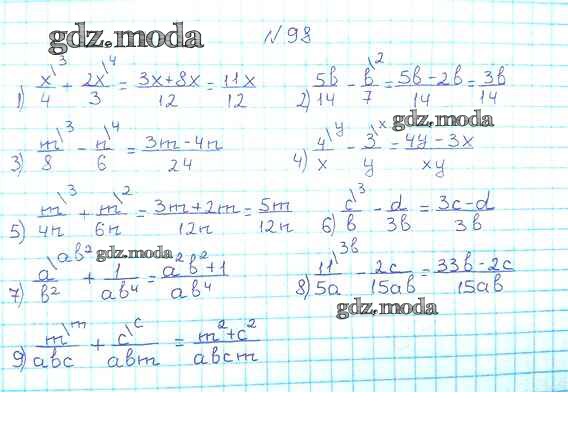 gdz.moda №98
1) x\3/4 + 2x\4/3 = 3x+8x/12 = 11x/12 2) 5b/14 - b\2/7 = 5b-2b/14 = 3b/14
gdz.moda
3) m\3/8 - n\4/6 = 3m-4n/24 4) 4\y/x - 3\x/y = 4y-3x/xy
5) m\3/4n + m\2/6n = 3m+2m/12n = 5m/12n 6) c\3/b - d/3b = 3c-d/3b
gdz.moda
7) a\ab²/b² + 1/ab⁴ = a²b²+1/ab⁴ 8) 11\3b/5a - 2c/15ab = 33b-2c/15ab
gdz.moda
9) m\m/abc + c\c/abm = m²+c²/abcm